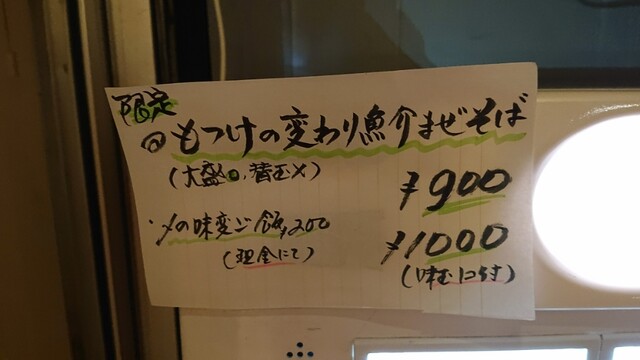 限定
◎もつけの変わり魚介まぜそば
(大盛○、替玉×)
¥900
・〆の味変ご飯¥200
(現金にて)
¥1000
(味むコ付)